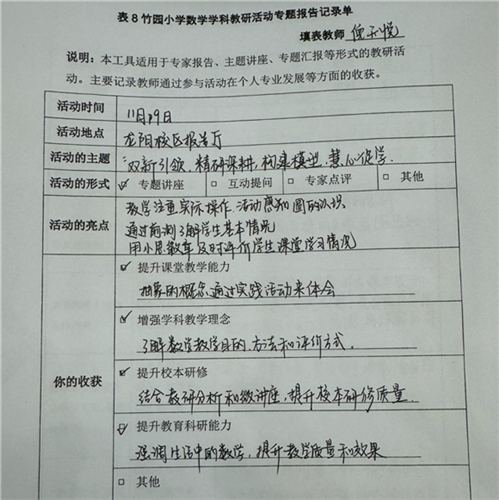 表 8 竹园小学数学学科教研活动专题报告记录单
填表教师
说明：本工具适用于专家报告、主题讲座、专题汇报等形式的教研活
动。主要记录教师通过参与活动在个人专业发展等方面的收获。
活动时间 11月19日
活动地点 龙阳校区报告厅
活动的主题 双新引领，精研课耕，构建模型，慧心促学。
活动的形式 ☑ 专题讲座 □ 互动提问 □ 专家点评 □ 其他
活动的亮点 教学注重实际操作 活动感知圆的认识
通过前测了解学生基本情况
用小思数车及时评价学生课堂学习情况
你的收获
☑ 提升课堂教学能力
抽象的概念通过实践活动来体会
☑ 增强学科教学理念
了解数学教学目的、方法和评价方式。
☑ 提升校本研修
结合教研分析和微讲座，提升校本研修质量.
☑ 提升教育科研能力
强调生活中的数学，提升教学质量和效果
□ 其他